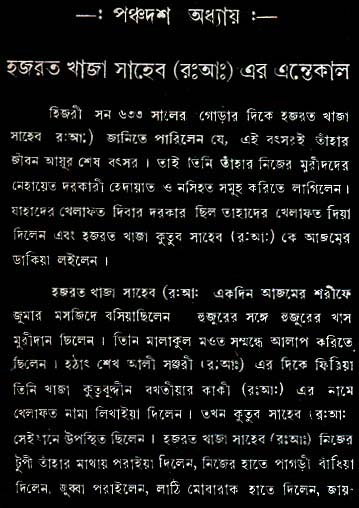 —: পঞ্চদশ অধ্যায় :—
হজরত খাজা সাহেব (রঃআঃ) এর এন্তেকাল
হিজরী সন ৬৩৩ সালের গোড়ার দিকে হজরত খাজা
সাহেব র:আ:) জানিতে পারিলেন যে, এই বৎসরই তাঁহার
জীবন আয়ুর শেষ বৎসর। তাই তিনি তাঁহার নিজের মুরীদদের
নেহায়েত দরকারী হেদায়াত ও নসিহত সমূহ করিতে লাগিলেন।
যাহাদের খেলাফত দিবার দরকার ছিল তাহাদের খেলাফত দিয়া
দিলেন এবং হজরত খাজা কুতুব সাহেব (র:আ:) কে আজমের
ডাকিয়া লইলেন।
হজরত খাজা সাহেব (র:আ: একদিন আজমের শরীফে
জুমার মসজিদে বসিয়াছিলেন হুজুরের সঙ্গে হুজুরের খাস
মুরীদান ছিলেন। তিনি মালাকুল মওত সম্মন্ধে আলাপ করিতে
ছিলেন। হঠাৎ শেখ আলী সঞ্জরী (র:আঃ) এর দিকে ফিরিয়া
তিনি খাজা কুতুবুদ্দীন বখতীয়ার কাকী (রঃআ:) এর নামে
খেলাফত নামা লিখাইয়া দিলেন। তখন কুতুব সাহেব (র:আ:
সেইখানে উপস্থিত ছিলেন। হজরত খাজা সাহেব (রঃআঃ) নিজের
টুপী তাঁহার মাথায় পরাইয়া দিলেন, নিজের হাতে পাগড়ী বাঁধিয়া
দিলেন, জুব্বা পরাইলেন, লাঠি মোবারক হাতে দিলেন, জায়-